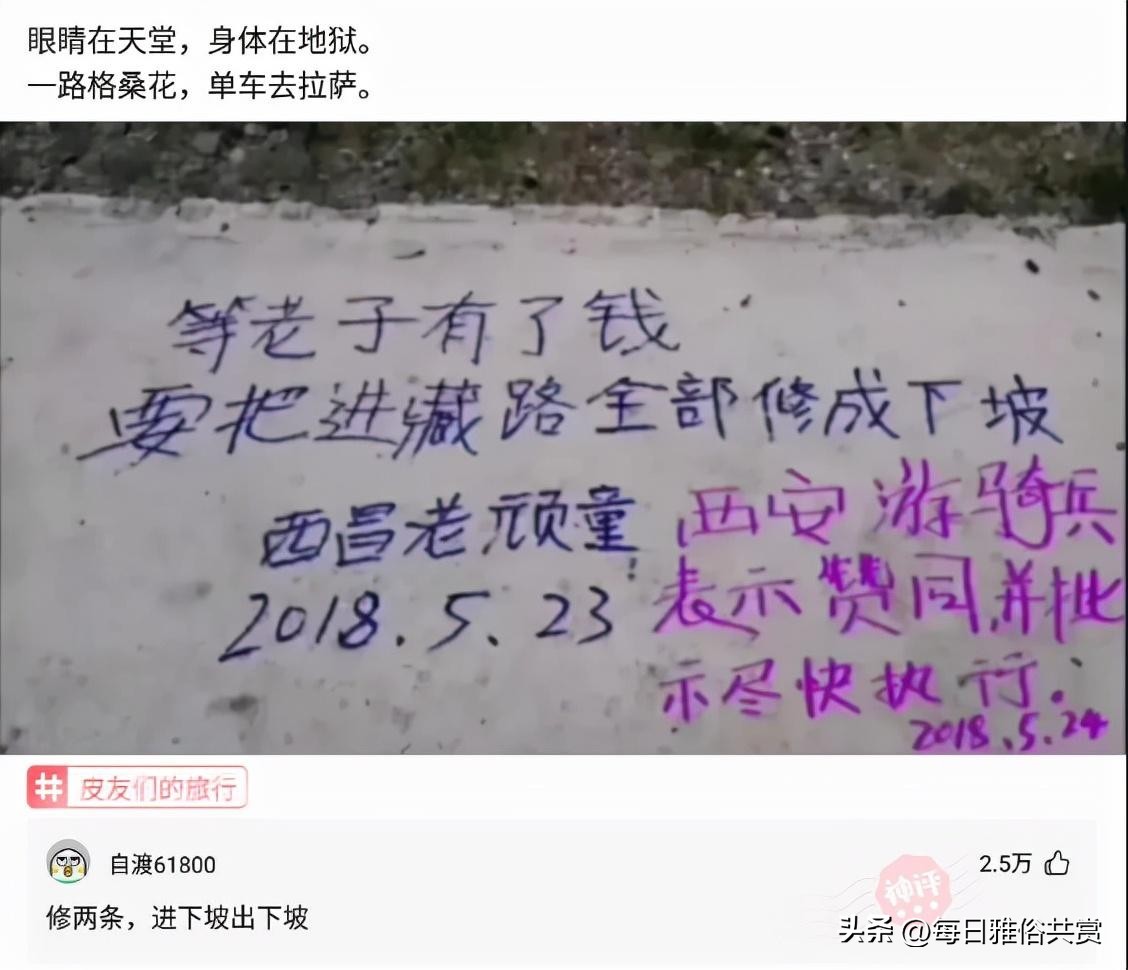 眼睛在天堂，身体在地狱。
一路格桑花，单车去拉萨。
等老子有了钱
要把进藏路全部修成下坡
西昌老顽童
2018.5.23
西安游骑兵
表示赞同,并批
示尽快执行.
2018.5.24
# 皮友们的旅行
自渡61800
2.5万
修两条，进下坡出下坡
神评
头条 @每日雅俗共赏